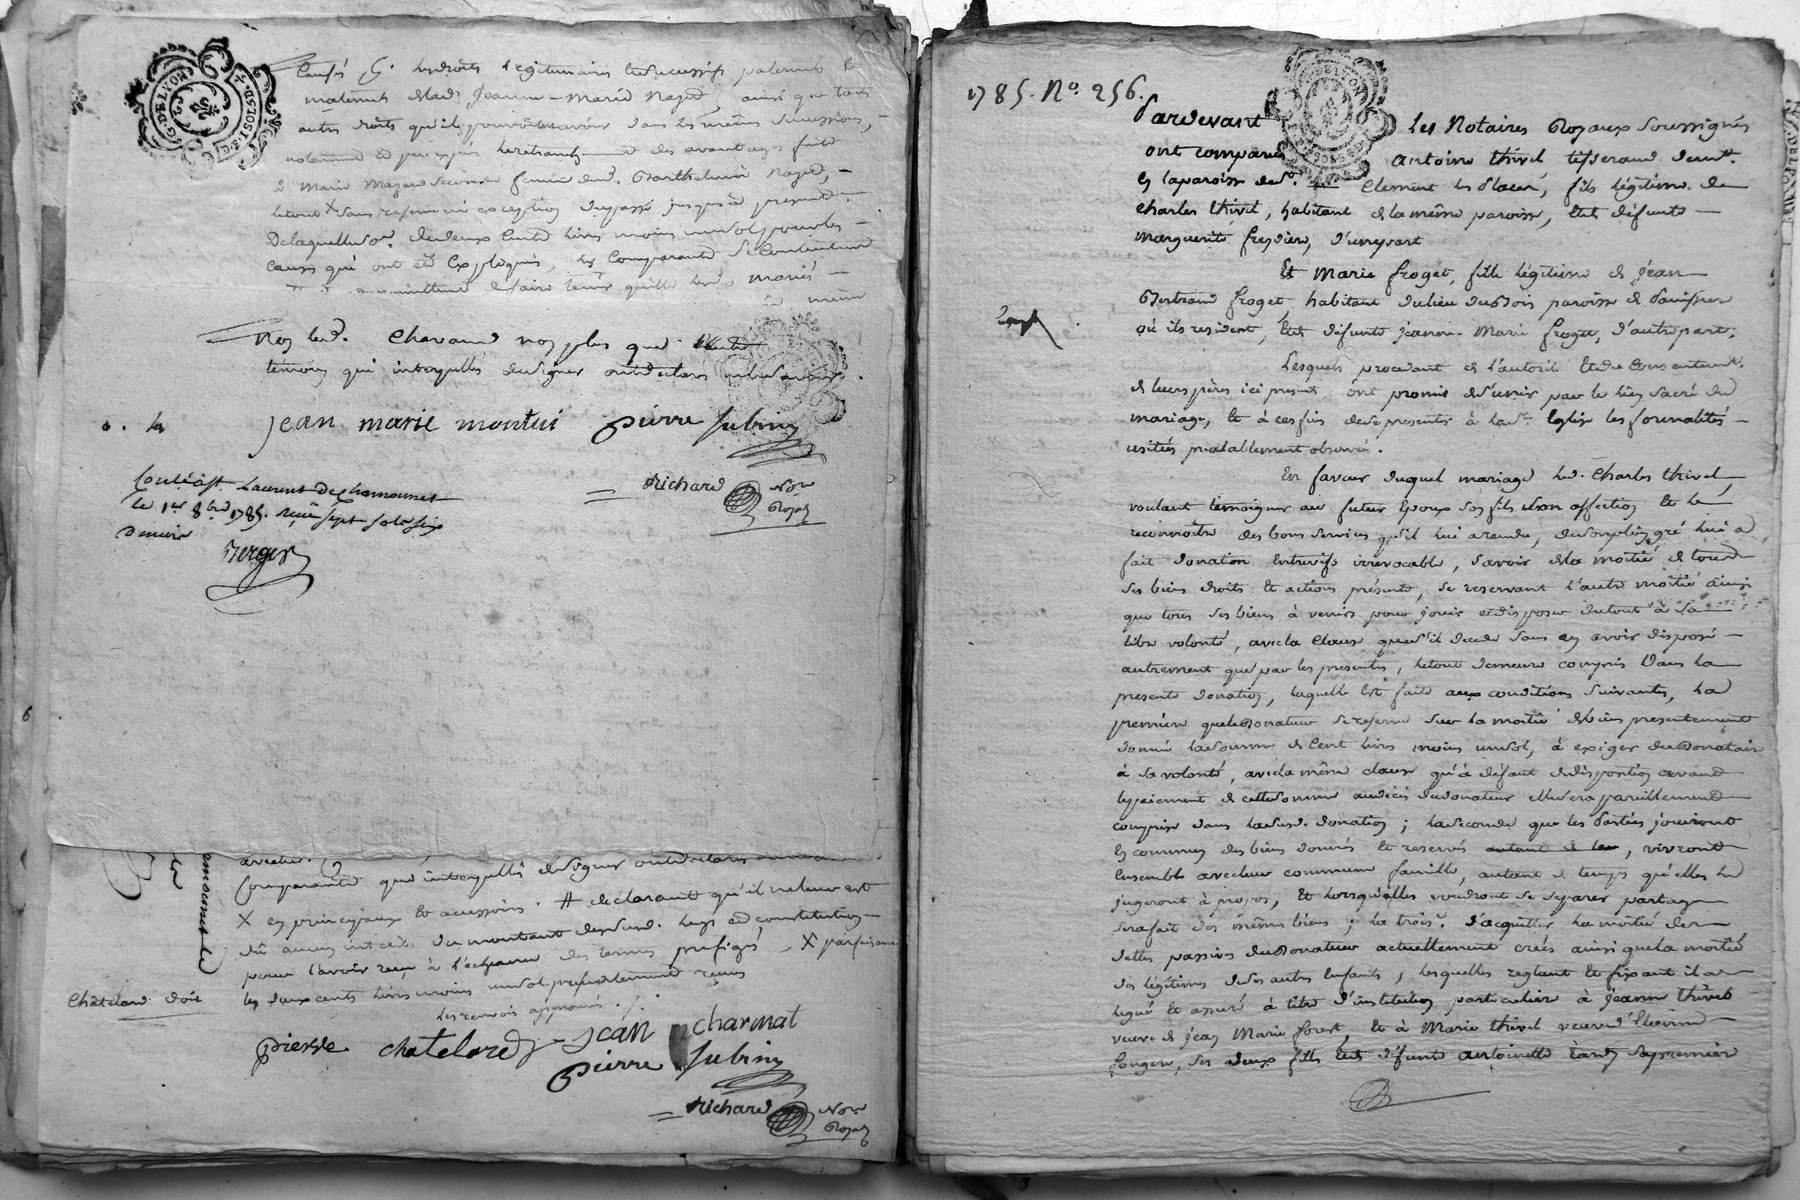 G. DE LYON
maternels de lad. Jeanne-Marie Nazed, ainsi que tous
autres droits qu'ils pouvoient avoir dans les mêmes successions,
notamment et par exprès le retranchement des avantages faits
à Marie Mazard seconde femme dud. Barthelemi Nazed,
le tout sans reserve ni exception du passé jusqu'à present.
De laquelle so. de deux cents livres moins un sol pour les
causes qui ont été expliquées, les comparants se contentent
mariés
Non led. Chavand non plus que
temoin qui interpellés de signer ont declaré ne le savoir.
jean marie montui pierre Subrin
Richard Nore Royal
Controllé à St. Laurent De Chamousset
le 1er 8bre 1785. reçu sept sols six
Deniers
Berger
comparants que interpellés de signer ont declaré
X en principaux et accessoires. # declarant qu'il ne leur est
dû aucuns interets du montant desd. legs et constitution
pour l'avoir reçu à l'echeance des termes prefigés, X parfaisant
les deux cents livres moins un sol presentement reçus
les renvois approuvés.
Châtelard doit
pierre chatelard jean charmat
pierre Subrin
Richard Nore Royal
1785. No. 256.
G. DE LYON
Pardevant les Notaires Royaux soussignés
ont comparu Antoine thivel tisserand demt.
en la paroisse de St. Clement les places, fils légitime de
Charles thivel, habitant de la même paroisse, et de défunte
Marguerite fresdiere, d'une part
Et Marie froget, fille légitime de jean
Bertrand froget habitant du lieu du Bois paroisse de Panissiere
où ils resident, et de défunte Jeanne-Marie froget, d'autre part.
Lesquels procedant de l'autorité et du consentemt.
de leurs pères ici presents ont promis de s'unir par le lien sacré du
mariage, et à ces fins de se presenter à la Ste. Eglise les formalités
usitées préalablement observées.
En faveur duquel mariage led. Charles thivel,
voulant temoigner au futur epoux son fils son affection et le
reconnoître des bons services qu'il lui a rendu, de son plein gré lui a
fait donation entrevifs irrevocable, savoir de la moitié de tous
ses biens droits et actions présents, se reservant l'autre moitié ainsi
que tous ses biens à venir pour jouir et disposer du tout à sa
libre volonté, avec la clause que s'il decede sans en avoir disposé
autrement que par les presentes, le tout demeure compris dans la
presente donation, laquelle est faite aux conditions suivantes, la
premiere que le Donateur se reserve sur la moitié des biens presentement
donnés la somme de cent livres moins un sol, à exiger du Donataire
à sa volonté, avec la même clause qu'à défaut de disposition avant
le paiement de cette somme au décès du donateur elle sera pareillement
comprise dans lad. donation; la seconde que les Parties jouiront
en commun des biens donnés et reservés, vivront
ensemble avec leur commune famille, autant de temps qu'elles le
jugeront à propos, et lorsqu'elles voudront se separer partage
sera fait des mêmes biens; la trois. d'acquitter la moitié des
dettes passives du Donateur actuellement créés ainsi que la moitié
des légitimes de ses autres enfants, lesquelles reglant et fixant il a
legué et assuré à titre d'institution particuliere à Jeanne thivel
veuve de jean Marie forest, et à Marie thivel veuve d'Etienne
fougere, ses deux filles et de défunte antoinette sa premiere